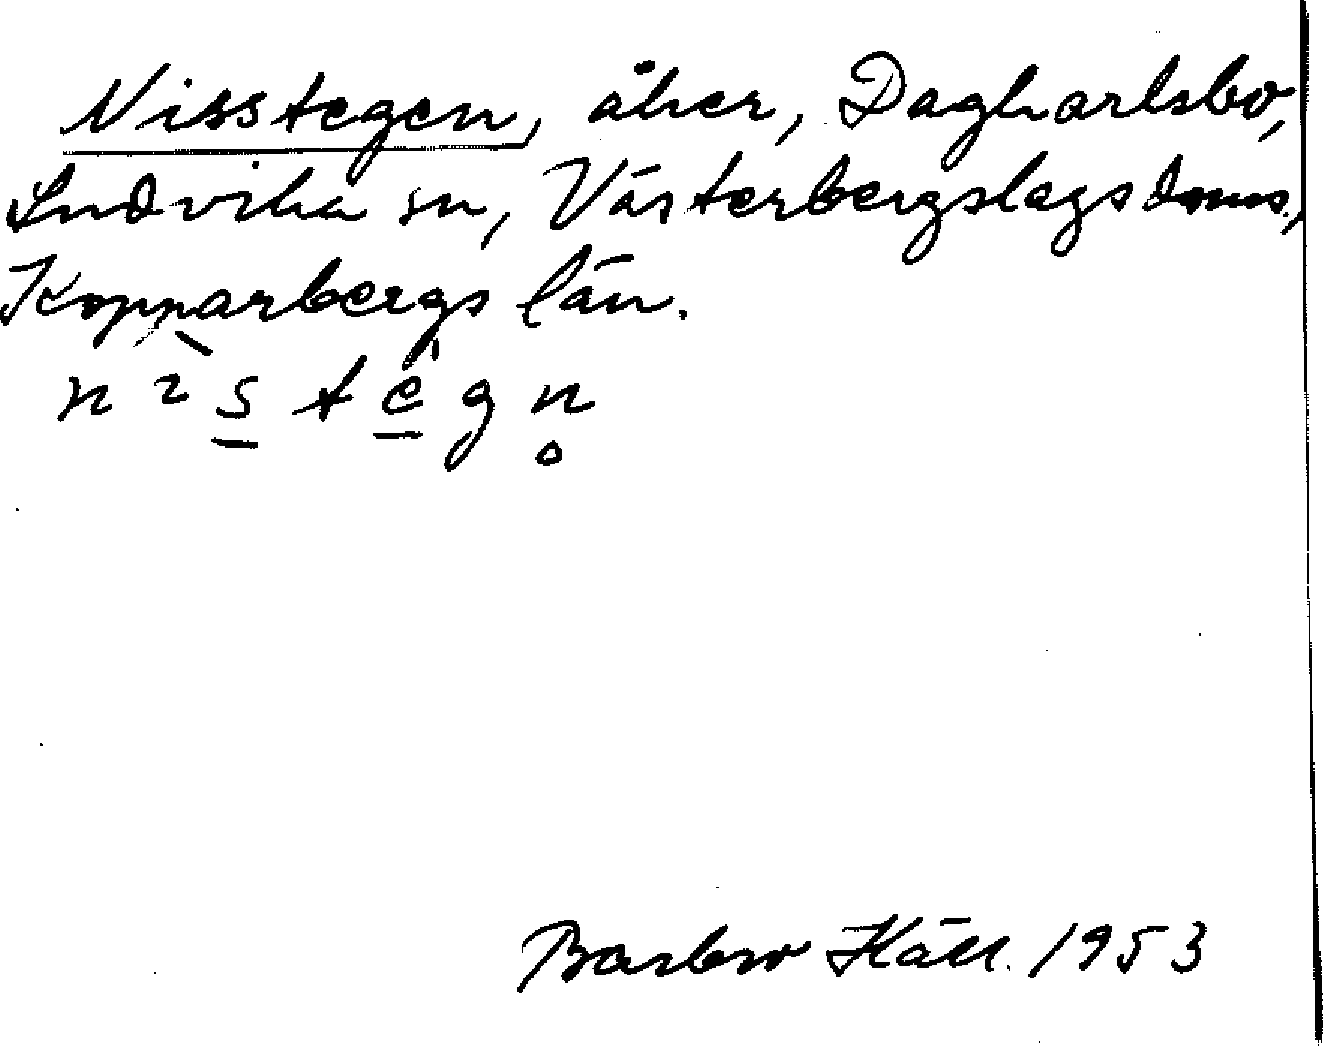 Nisstegen, åker, Dagkarlsbo,
Ludvika sn, Västerbergslags doms.,
Kopparbergs län.
nìs̱tè̱gn̥
Barbro Käll. 1953